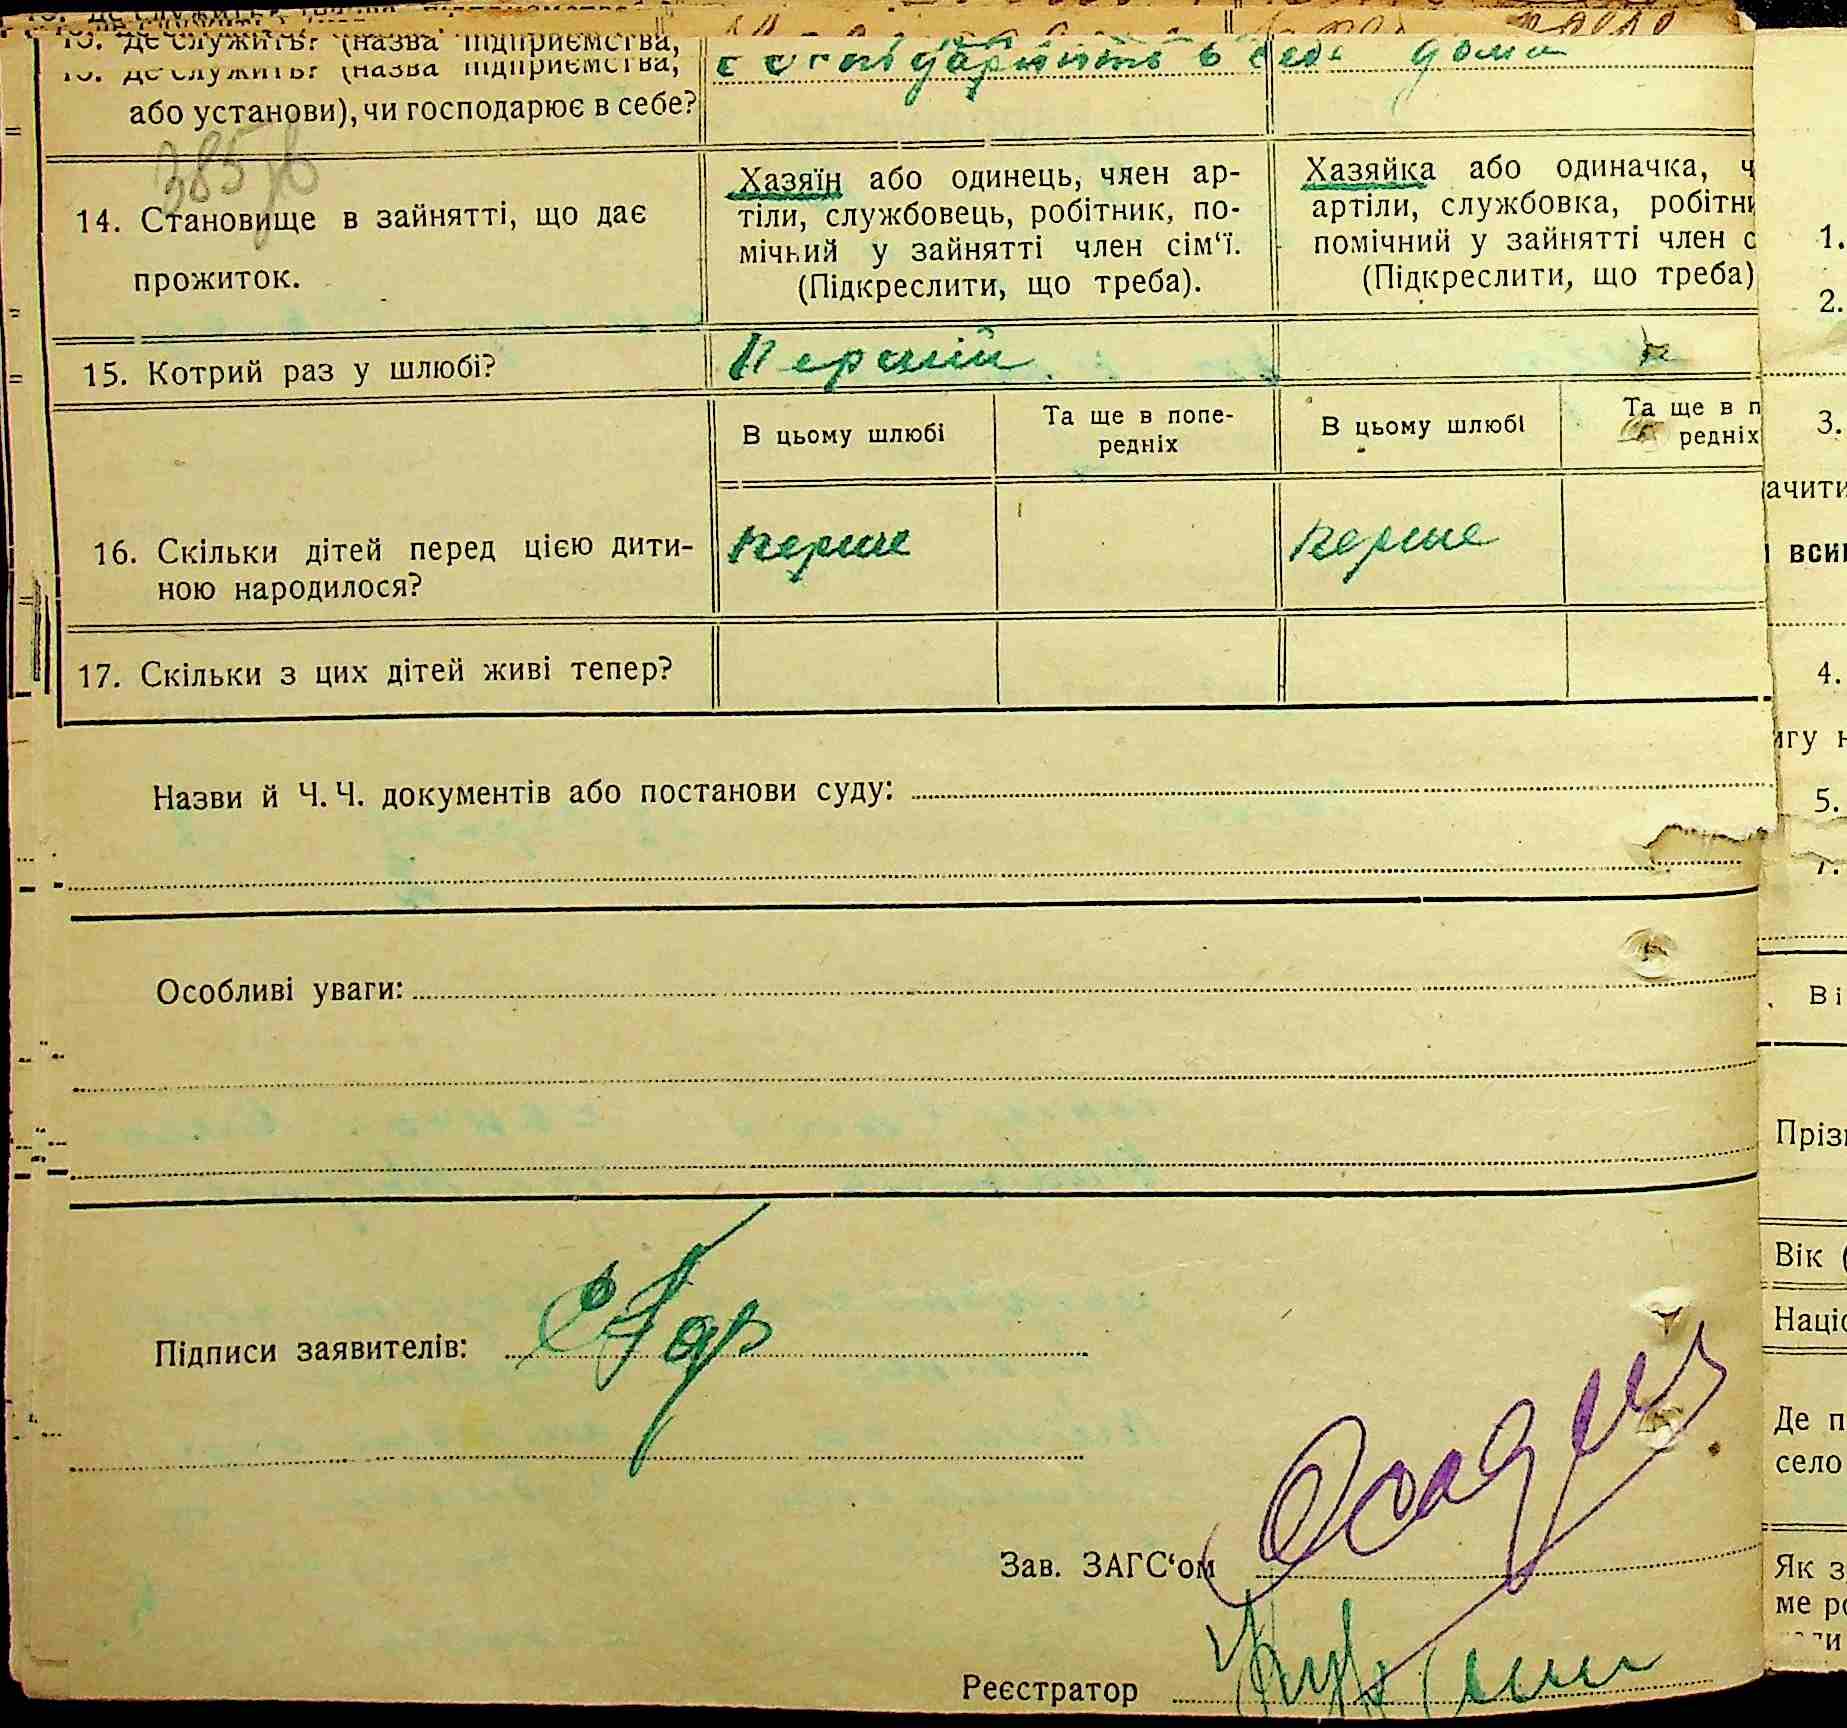 13. Де служить? (назва підприємства,
або установи), чи господарює в себе?
господарить в себе дома
385
14. Становище в зайнятті, що дає
прожиток.
Хазяїн або одинець, член ар-
тіли, службовець, робітник, по-
мічний у зайнятті член сім‘ї.
(Підкреслити, що треба).
Хазяйка або одиначка, ч
артіли, службовка, робітни
помічний у зайнятті член с
(Підкреслити, що треба)
15. Котрий раз у шлюбі?
Перший
В цьому шлюбі
Та ще в попе-
редніх
В цьому шлюбі
Та ще в п
редніх
16. Скільки дітей перед цією дити-
ною народилося?
перше
перше
17. Скільки з цих дітей живі тепер?
Назви й Ч. Ч. документів або постанови суду:
Особливі уваги:
Підписи заявителів:
Зав. ЗАГС‘ом
Реєстратор
1.
2.
3.
ачити
4.
игу н
5.
7.
Ві
Прізв
Вік (
Націо
Де п
село
Як з
ме ро